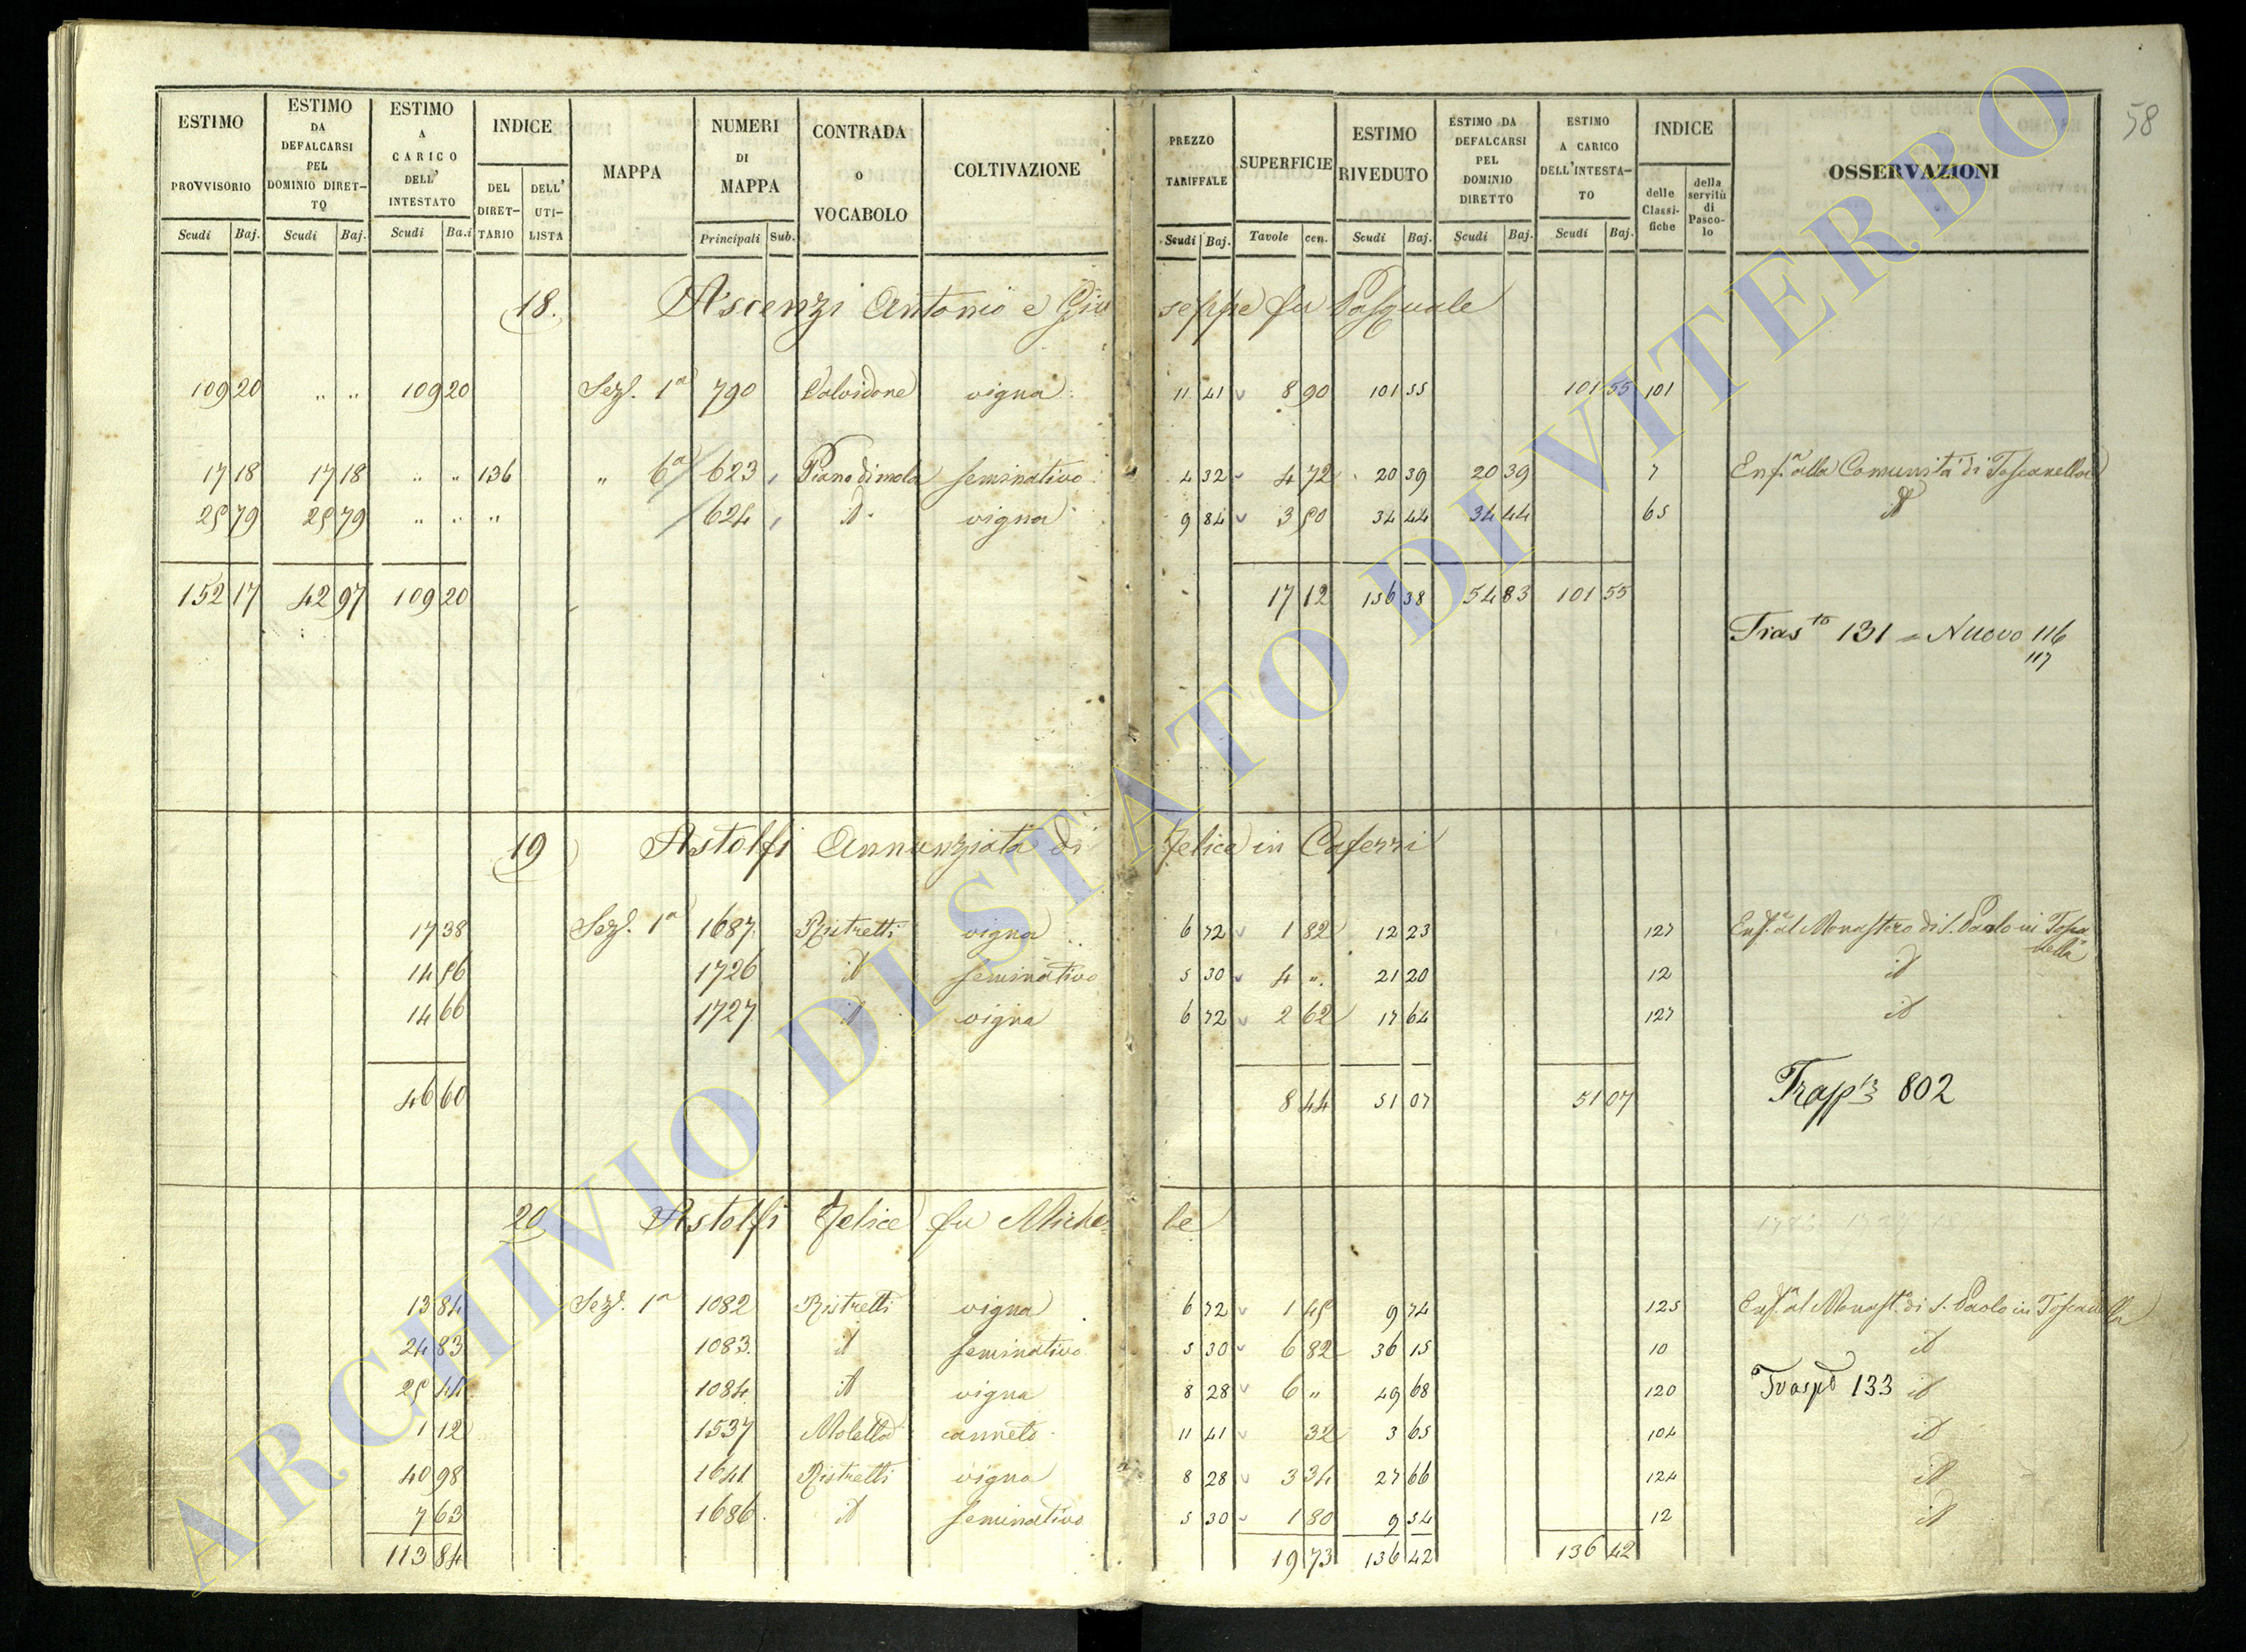 58
ESTIMO PROVVISORIO Scudi Baj.
ESTIMO DA DEFALCARSI PEL DOMINIO DIRET-TO Scudi Baj.
ESTIMO A CARICO DELL' INTESTATO Scudi Ba.i
INDICE DEL DIRET-TARIO DELL' UTI-LISTA
MAPPA
NUMERI DI MAPPA Principali Sub.
CONTRADA o VOCABOLO
COLTIVAZIONE
PREZZO TARIFFALE Scudi Baj.
SUPERFICIE Tavole cen.
ESTIMO RIVEDUTO Scudi Baj.
ESTIMO DA DEFALCARSI PEL DOMINIO DIRETTO Scudi Baj.
ESTIMO A CARICO DELL'INTESTA-TO Scudi Baj.
INDICE delle Classi-fiche della servitù di Pasco-lo
OSSERVAZIONI
18. Ascenzi Antonio e Giuseppe fu Pasquale
109 20 " " 109 20 Sez. 1a 790 Valvidone vigna 11 41 8 90 101 55 101 55 101
17 18 17 18 " " 136 " 6a 623 Piano di mola seminativo 4 32 4 72 20 39 20 39 7 Enf.a alla Comunità di Toscanella
25 79 25 79 " " " 624 id vigna 9 84 3 50 34 44 34 44 65 id
152 17 42 97 109 20 17 12 156 38 54 83 101 55
Tras.to 131 = Nuovo 116
117
19 Astolfi Annunziata di Felice in Caferri
17 38 Sez. 1a 1687 Ristretti vigna 6 72 1 82 12 23 127 Enf.a al Monastero di S. Paolo in Tosca
nella
14 56 1726 id seminativo 5 30 4 " 21 20 12 id
14 66 1727 id vigna 6 72 2 62 17 64 127 id
46 60 8 44 51 07 51 07
802
20 Astolfi Felice fu Michele
13 84 Sez. 1a 1082 Ristretti vigna 6 72 1 45 9 74 125 Enf.a al Monast.o di S. Paolo in Toscanella
24 83 1083 id seminativo 5 30 6 82 36 15 10 id
25 44 1084 id vigna 8 28 6 " 49 68 120 133 id
1 12 1537 Moletta canneto 11 41 32 3 65 104 id
40 98 1641 Ristretti vigna 8 28 3 34 27 66 124 id
7 63 1686 id seminativo 5 30 1 80 9 54 12 id
113 84 19 73 136 42 136 42
ARCHIVIO DI STATO DI VITERBO